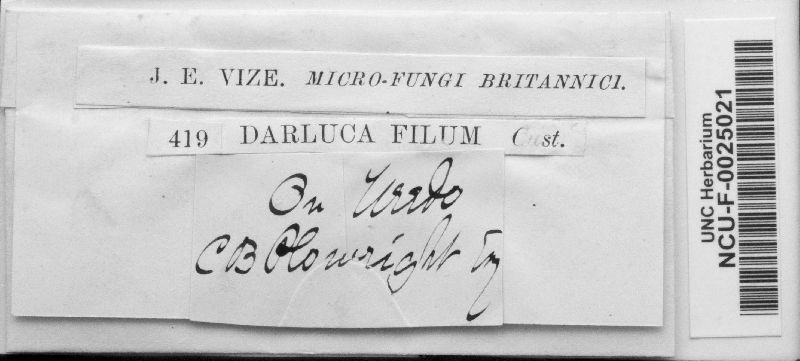 J. E. VIZE. MICRO-FUNGI BRITANNICI.
419 DARLUCA FILUM Cast.
On Uredo
C B Plowright Esq
UNC Herbarium
NCU-F-0025021